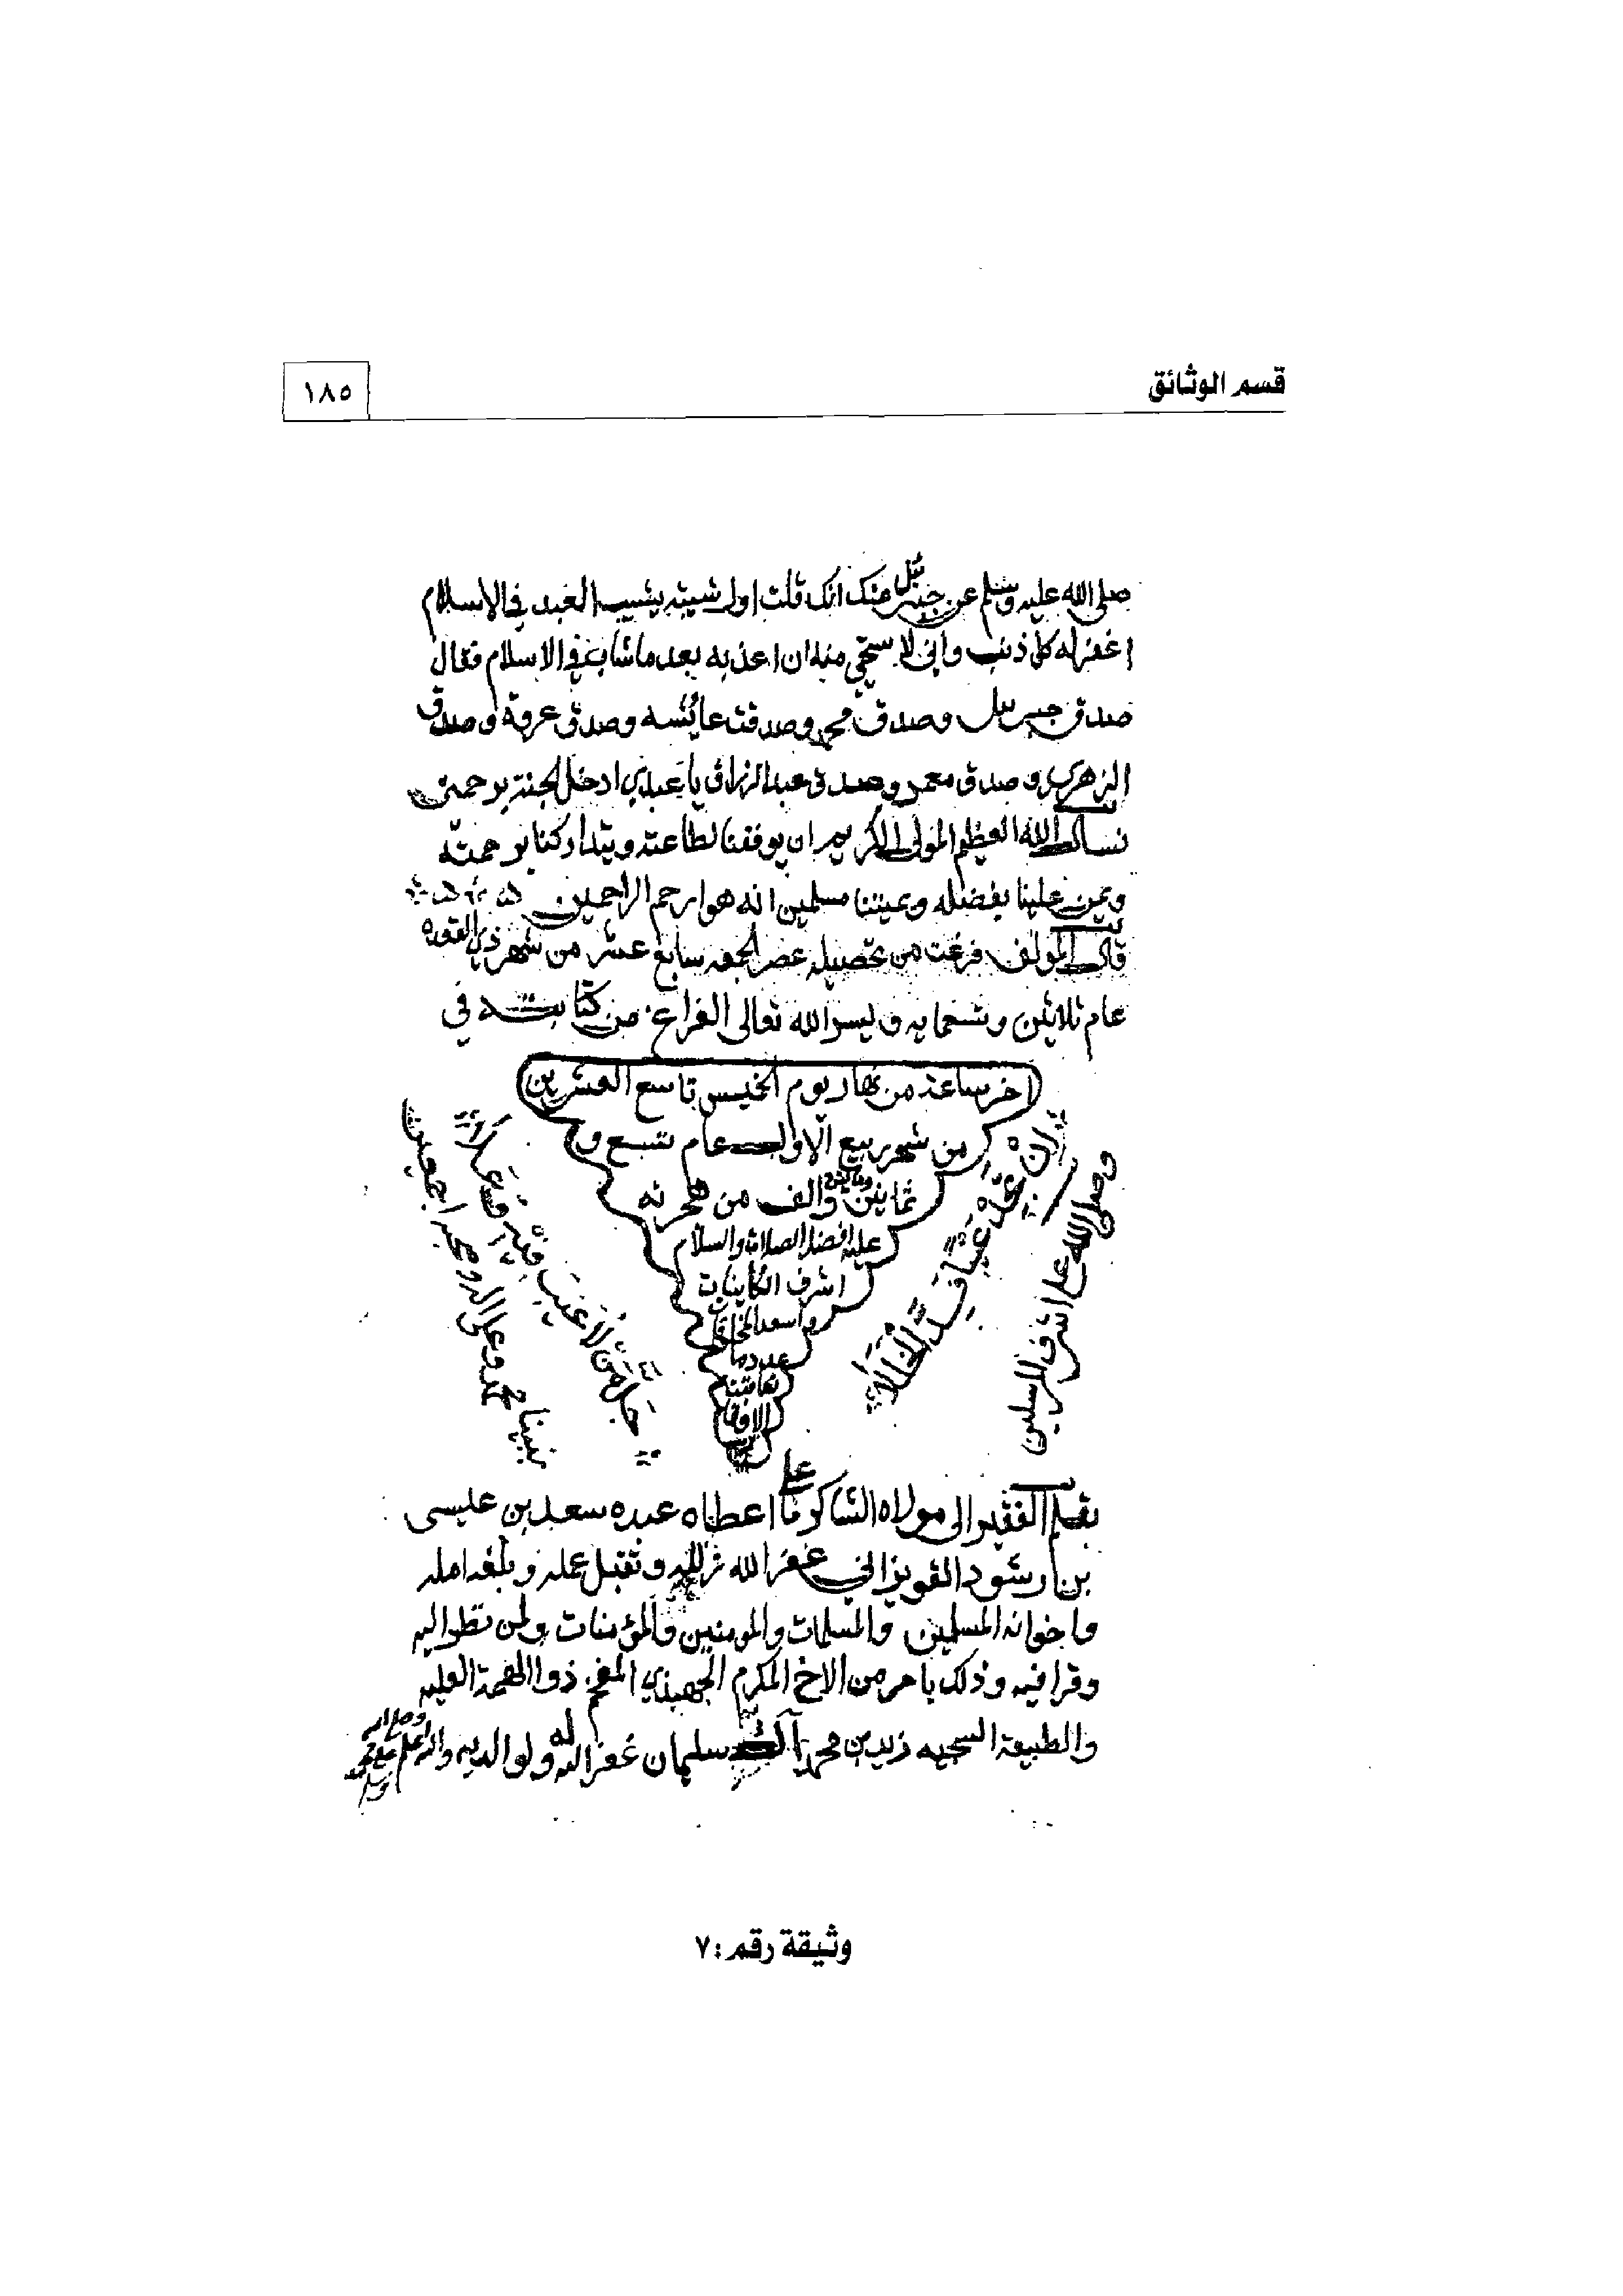 قسم الوثائق
١٨٥
صلى الله عليه وسلم عن جبريل عنك انك قلت اول شيبة يشيب العبد في الاسلام
اغفر له كل ذنب واني لا ستحي منه ان اعذبه بعد ما شاب في الاسلام فقال
صدق جبريل وصدق محمد وصدقت عايشه وصدق عروة وصدق
الزهري وصدق معمر وصدق عبد الرزاق يا عبدي ادخل الجنة برحمتي
نسال الله العظيم المولى الكريم ان يوفقنا لطاعته ويتداركنا برحمته
ويمن علينا بفضله ويميتنا مسلمين انه هو ارحم الراحمين
قال المولف فرغت من تحصيله عصر الجمعه سابع عشر من شهر ذي القعده
عام ثلاثين وتسعمايه ويسر الله تعالى الفراغ من كتابته في
اخر ساعة من نهار يوم الخميس تاسع العشرين
من شهر ربيع الاول عام سبع و
ثمانين ومائتين والف من هجرته
عليه افضل الصلاة والسلام
اشرف الكاينات
واسعد
عدد ما
ان تجد عيبا فسد الخللا
جل من لا عيب فيه وعلا
وصلى الله على اشرف المرسلين
نبينا محمد وعلى اله وصحبه اجمعين
بقلم الفقير الى مولاه الشاكر على ما اعطاه عبده سعد بن عيسى
بن رشود القويزاني غفر الله زلله وتقبل عمله وبلغه امله
واخوانه المسلمين والمسلمات والمومنين والمؤمنات ولمن نظر اليه
وقرا فيه وذلك بامر من الاخ المكرم الجهبذي المفخم ذو الهمة العليه
والطبيعة السجيه زيد بن محمد آل سليمان غفر الله له ولوالديه والله اعلم وصلى الله على محمد وسلم
وثيقة رقم: ٧